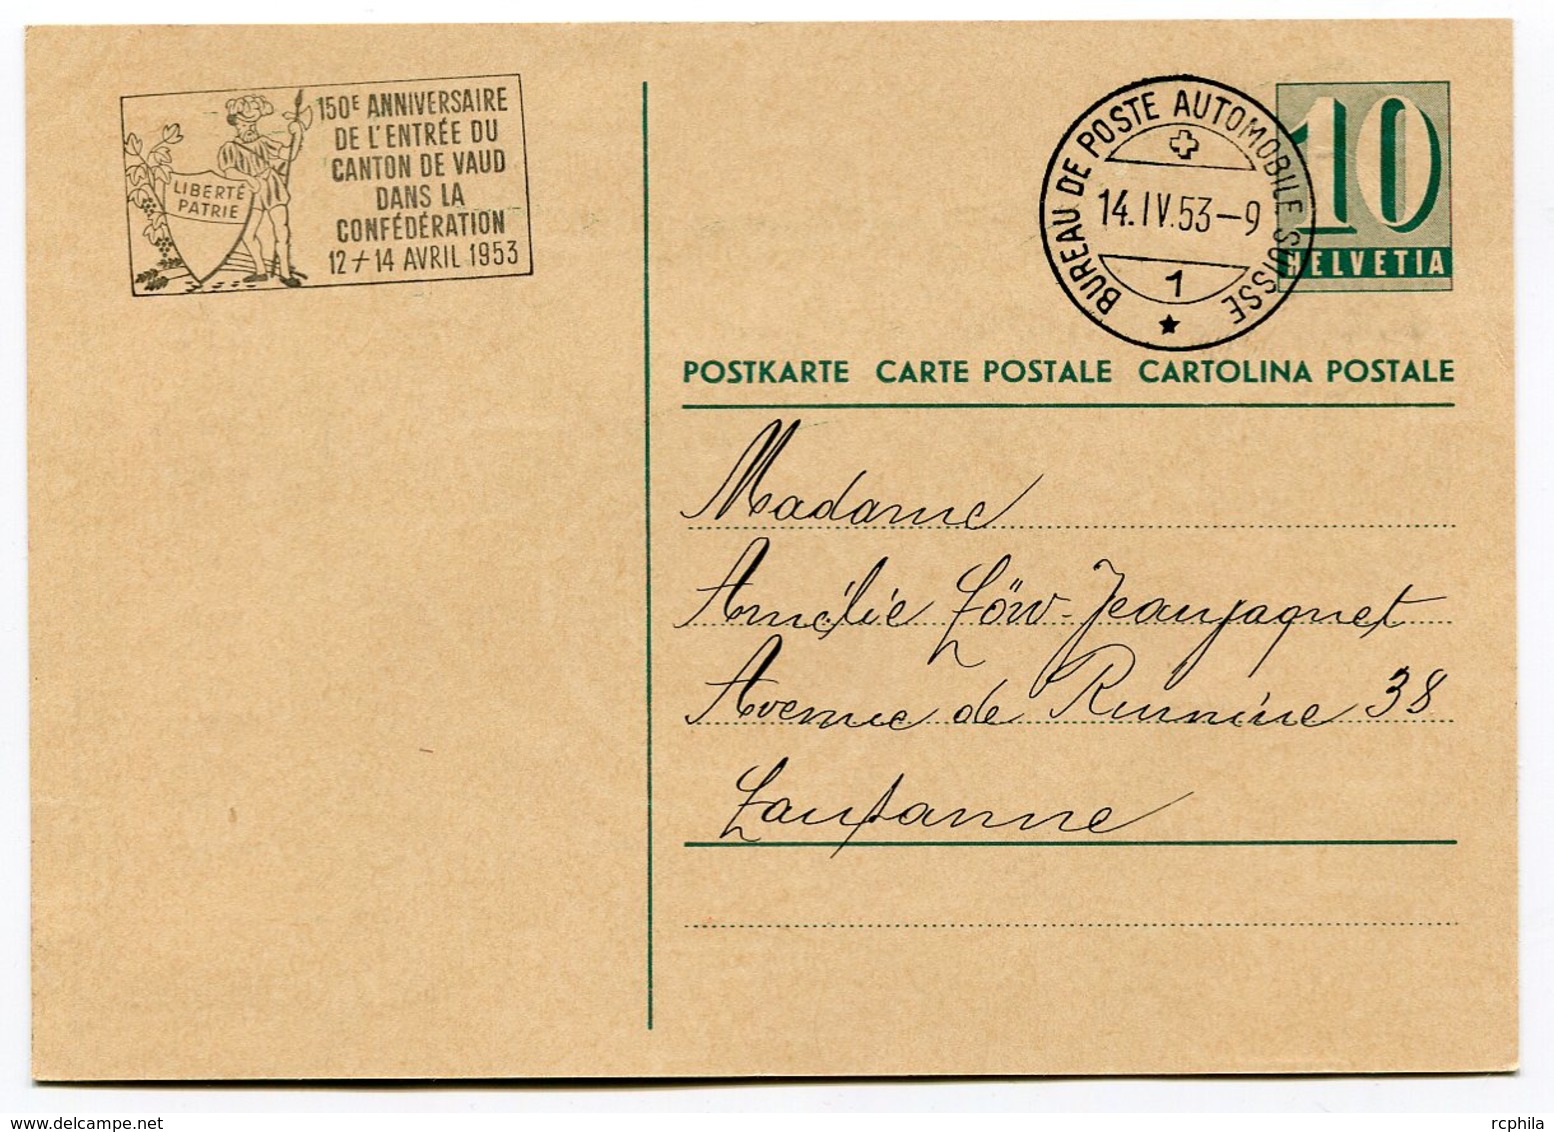 150E ANNIVERSAIRE
DE L'ENTRÉE DU
CANTON DE VAUD
DANS LA
CONFÉDÉRATION
12 + 14 AVRIL 1953
LIBERTÉ
PATRIE
BUREAU DE POSTE AUTOMOBILE SUISSE
14.IV.53-9
1
10
HELVETIA
POSTKARTE CARTE POSTALE CARTOLINA POSTALE
Madame
Amélie Löw-Jeanjaquet
Avenue de Rumine 38
Lausanne
rcphila